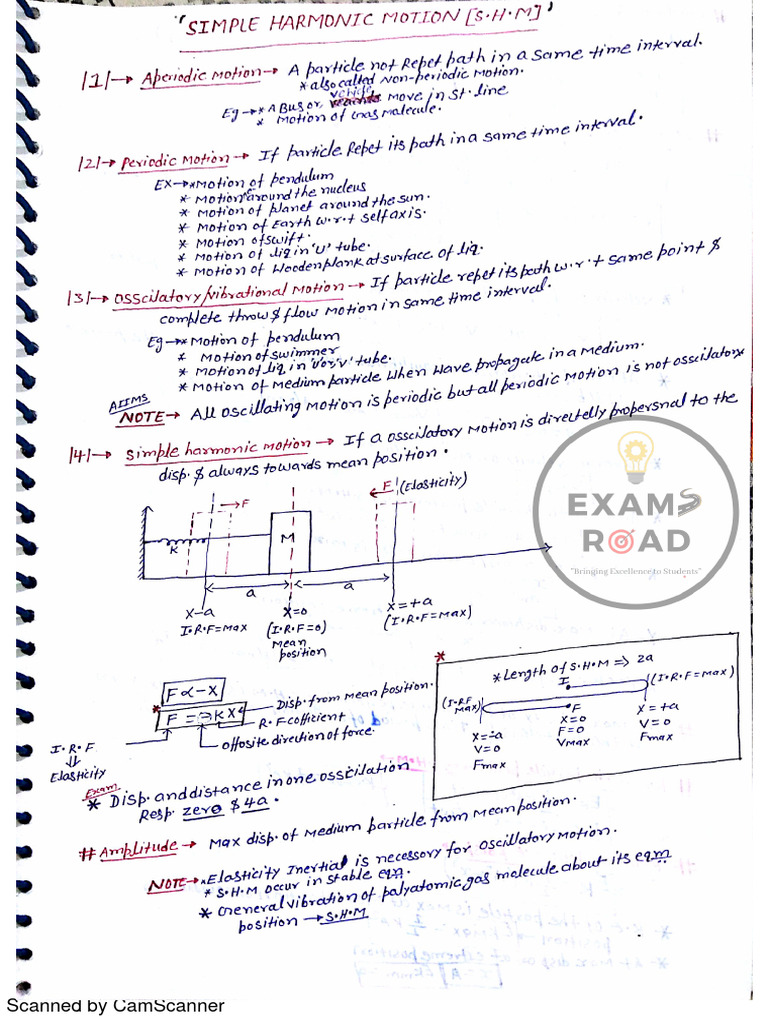 "SIMPLE HARMONIC MOTION [S.H.M]"
|1|→ Aperiodic Motion → A particle not Repet path in a same time interval.
* also called Non-periodic Motion.
vehicle
Eg→* A Bus or move in St. line
* Motion of Gas Malecule.
|2|→ Periodic Motion → If particle Repet its path in a same time interval.
Ex→* Motion of pendulum
* Motion around the nucleus
* Motion of planet around the sun.
* Motion of Earth w.r.t self axis.
* Motion of swift.
* Motion of liq in 'U' tube.
* Motion of Wooden plank at surface of liq.
|3|→ Osscilatory/vibrational Motion → If particle repet its path w.r.t same point &
complete throw & flow Motion in same time interval.
Eg→* Motion of pendulum
* Motion of swimmer
* Motion of liq in 'U' or 'V' tube.
* Motion of Medium particle When Wave propagate in a Medium.
AIIMS
NOTE → All oscillating Motion is periodic but all periodic Motion is not osscilatory
|4|→ Simple harmonic Motion → If a osscilatory Motion is direltelly propersnal to the
disp. & always towards mean position.
→F
F (Elasticity)
K
M
a
a
X-a
X=0
X=+a
I.R.F=Max
(I.R.F=0)
(I.R.F=Max)
Mean
position
EXAMS
ROAD
"Bringing Excellence to Students"
*
* Length of S.H.M ⇒ 2a
I
(I.R.F=Max)
(I.R.F
Max)
F
X=-a
X=0
X=+a
V=0
F=0
V=0
Fmax
Vmax
Fmax
F∝-X
* F=-KX
Disp. from Mean position.
R.F cofficient
offosite direction of force.
I.R.F
⇓
Elasticity
Exam
* Disp. and distance in one osscilation
Resp. zero & 4a.
# Amplitude → Max disp. of Medium particle from Mean position.
NOTE→* Elasticity Inertial is necessary for oscillatory Motion.
* S.H.M occur in stable eqm.
* General vibration of palyatomic gas molecule about its eqm
position → S.H.M
Scanned by CamScanner